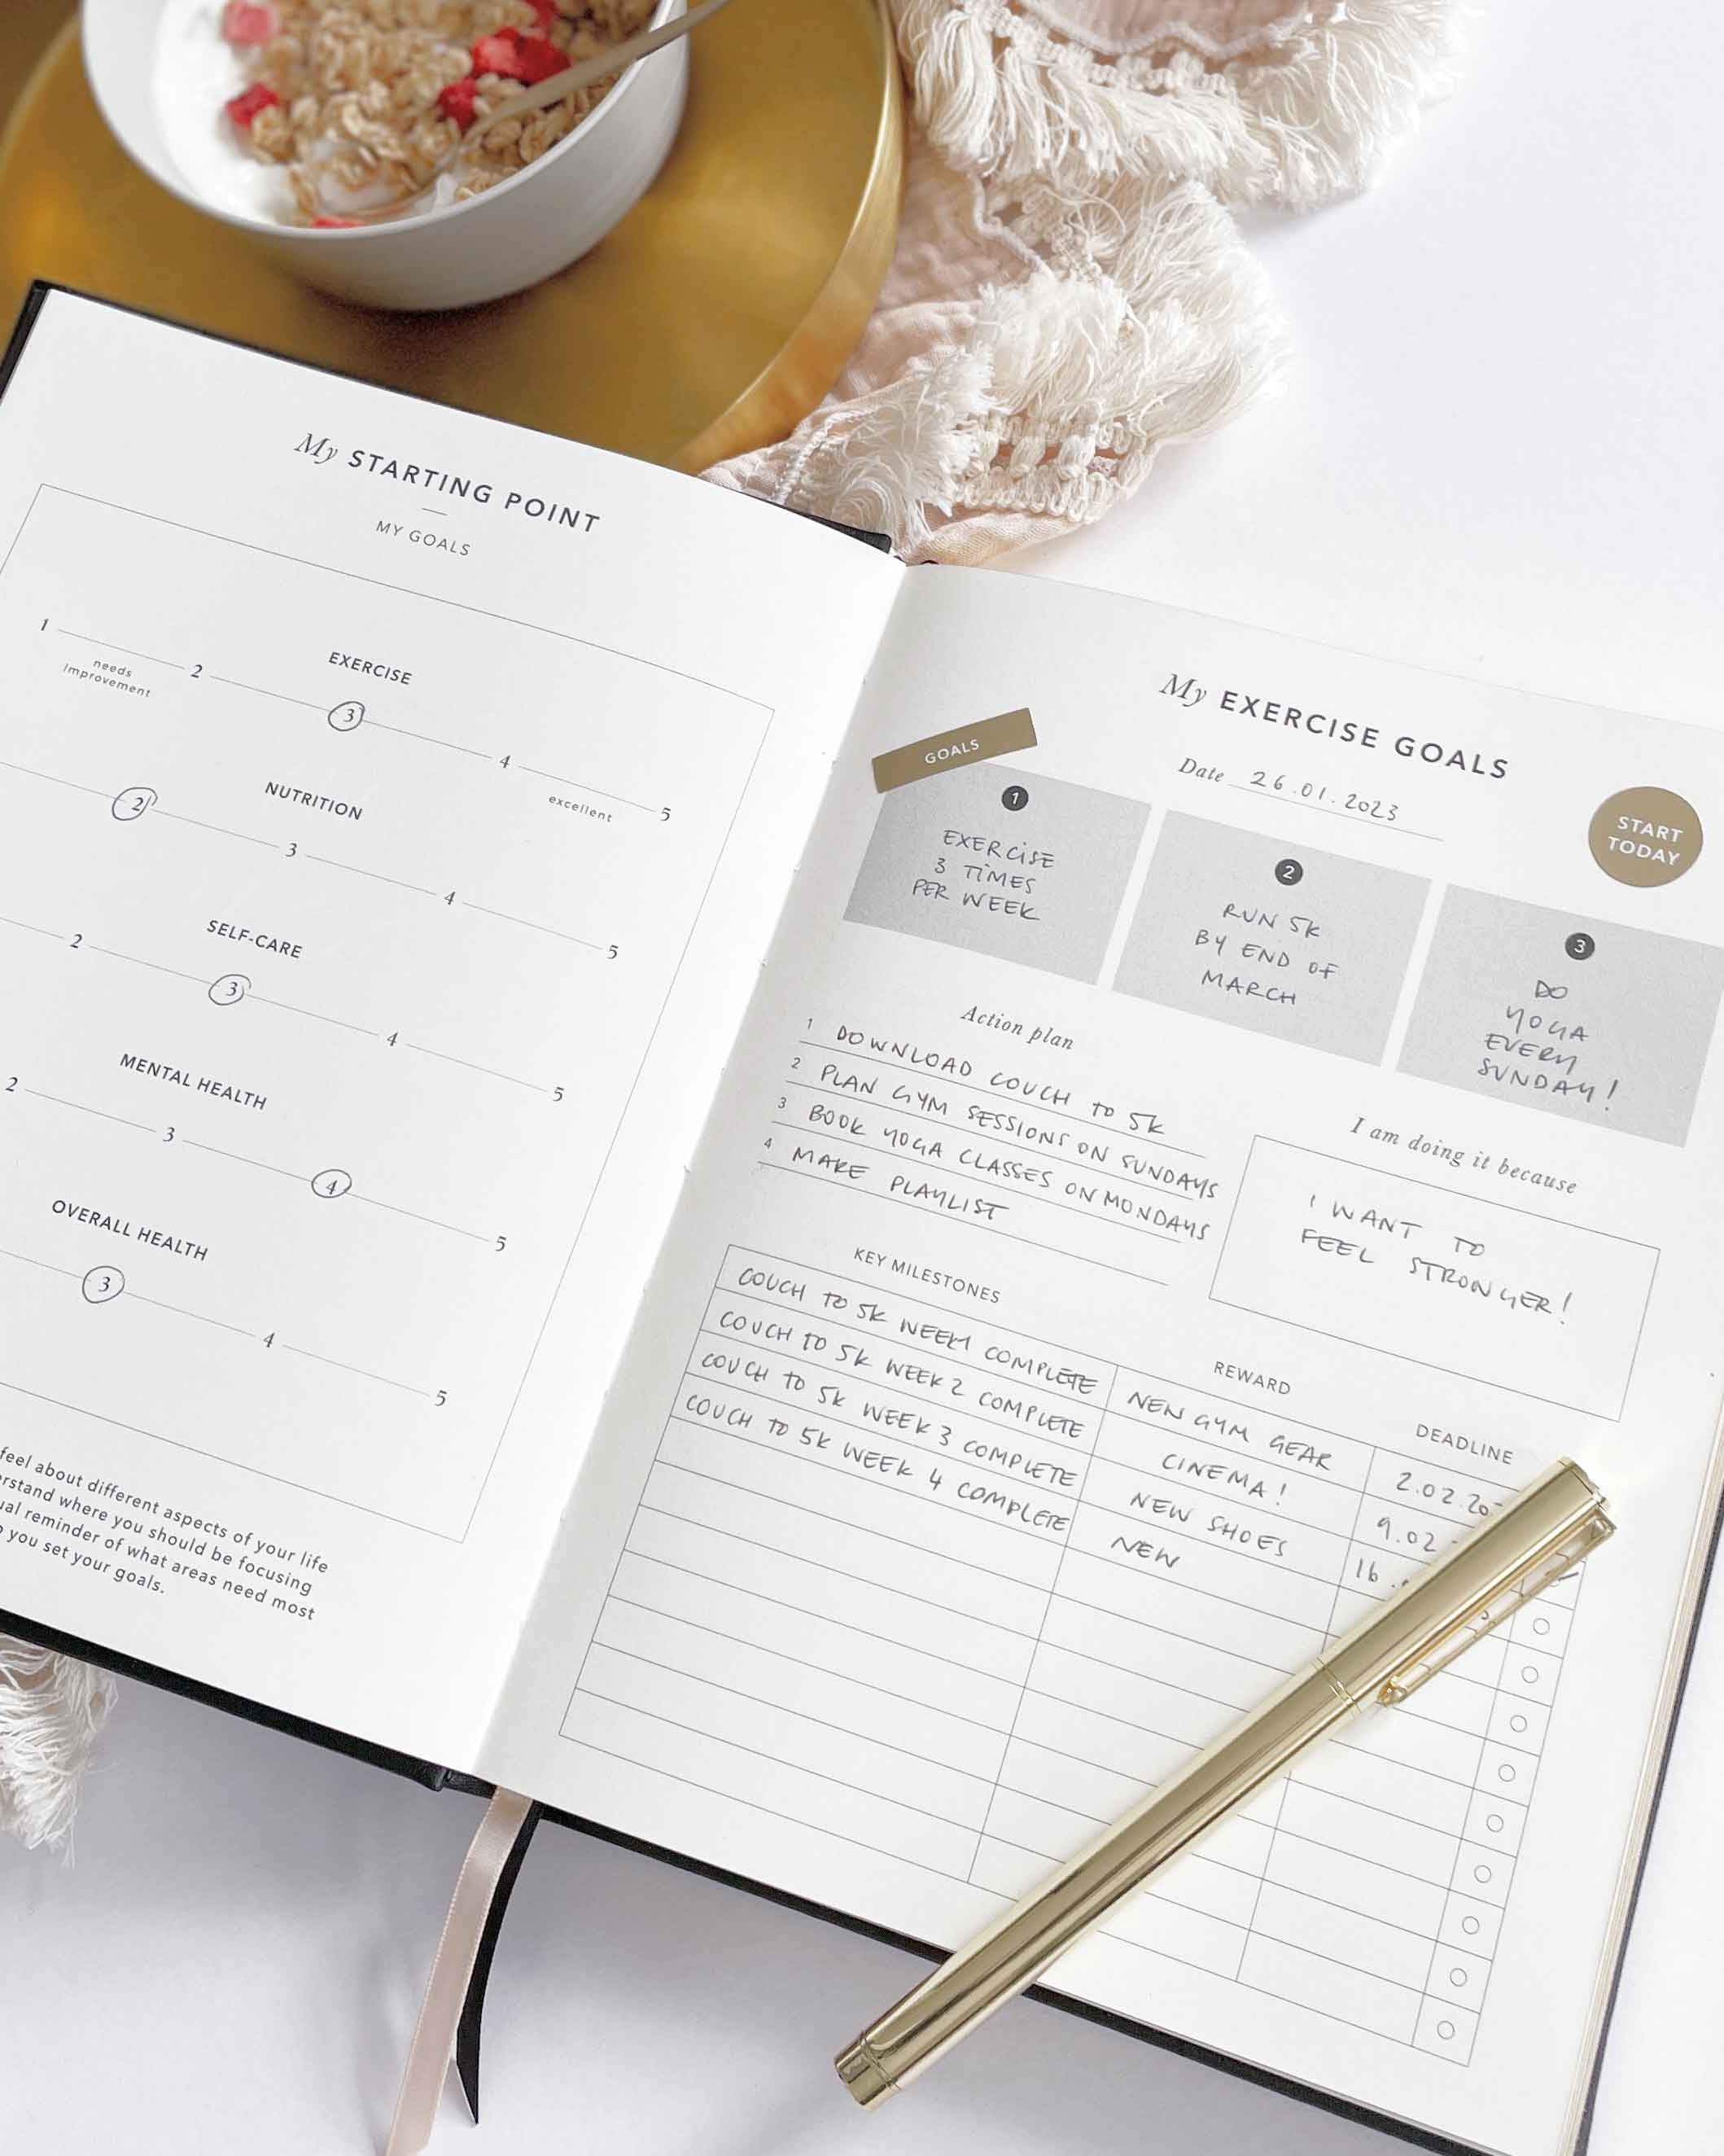 My STARTING POINT
MY GOALS
EXERCISE
1 2 3 4 5
needs
improvement
excellent
NUTRITION
2 3 4 5
SELF-CARE
2 3 4 5
MENTAL HEALTH
2 3 4 5
OVERALL HEALTH
3 4 5
feel about different aspects of your life
you should be focusing
reminder of what areas need most
you set your goals.
My EXERCISE GOALS
Date 26.01.2023
START
TODAY
GOALS
1
EXERCISE
3 TIMES
PER WEEK
2
RUN 5K
BY END OF
MARCH
3
DO
YOGA
EVERY
SUNDAY!
Action plan
1 DOWNLOAD COUCH TO 5K
2 PLAN GYM SESSIONS ON SUNDAYS
3 BOOK YOGA CLASSES ON MONDAYS
4 MAKE PLAYLIST
I am doing it because
I WANT TO
FEEL STRONGER!
KEY MILESTONES REWARD DEADLINE
COUCH TO 5K WEEK 1 COMPLETE NEW GYM GEAR 2.02.20
COUCH TO 5K WEEK 2 COMPLETE CINEMA! 9.02
COUCH TO 5K WEEK 3 COMPLETE NEW SHOES 16.
COUCH TO 5K WEEK 4 COMPLETE NEW